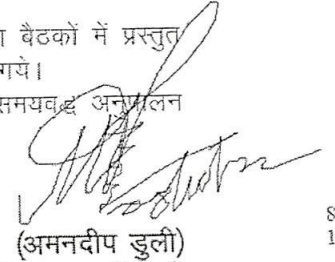 बैठकों में प्रस्तुत
गये।
समयवद्ध अनुपालन
(अमनदीप डुली)
8
1